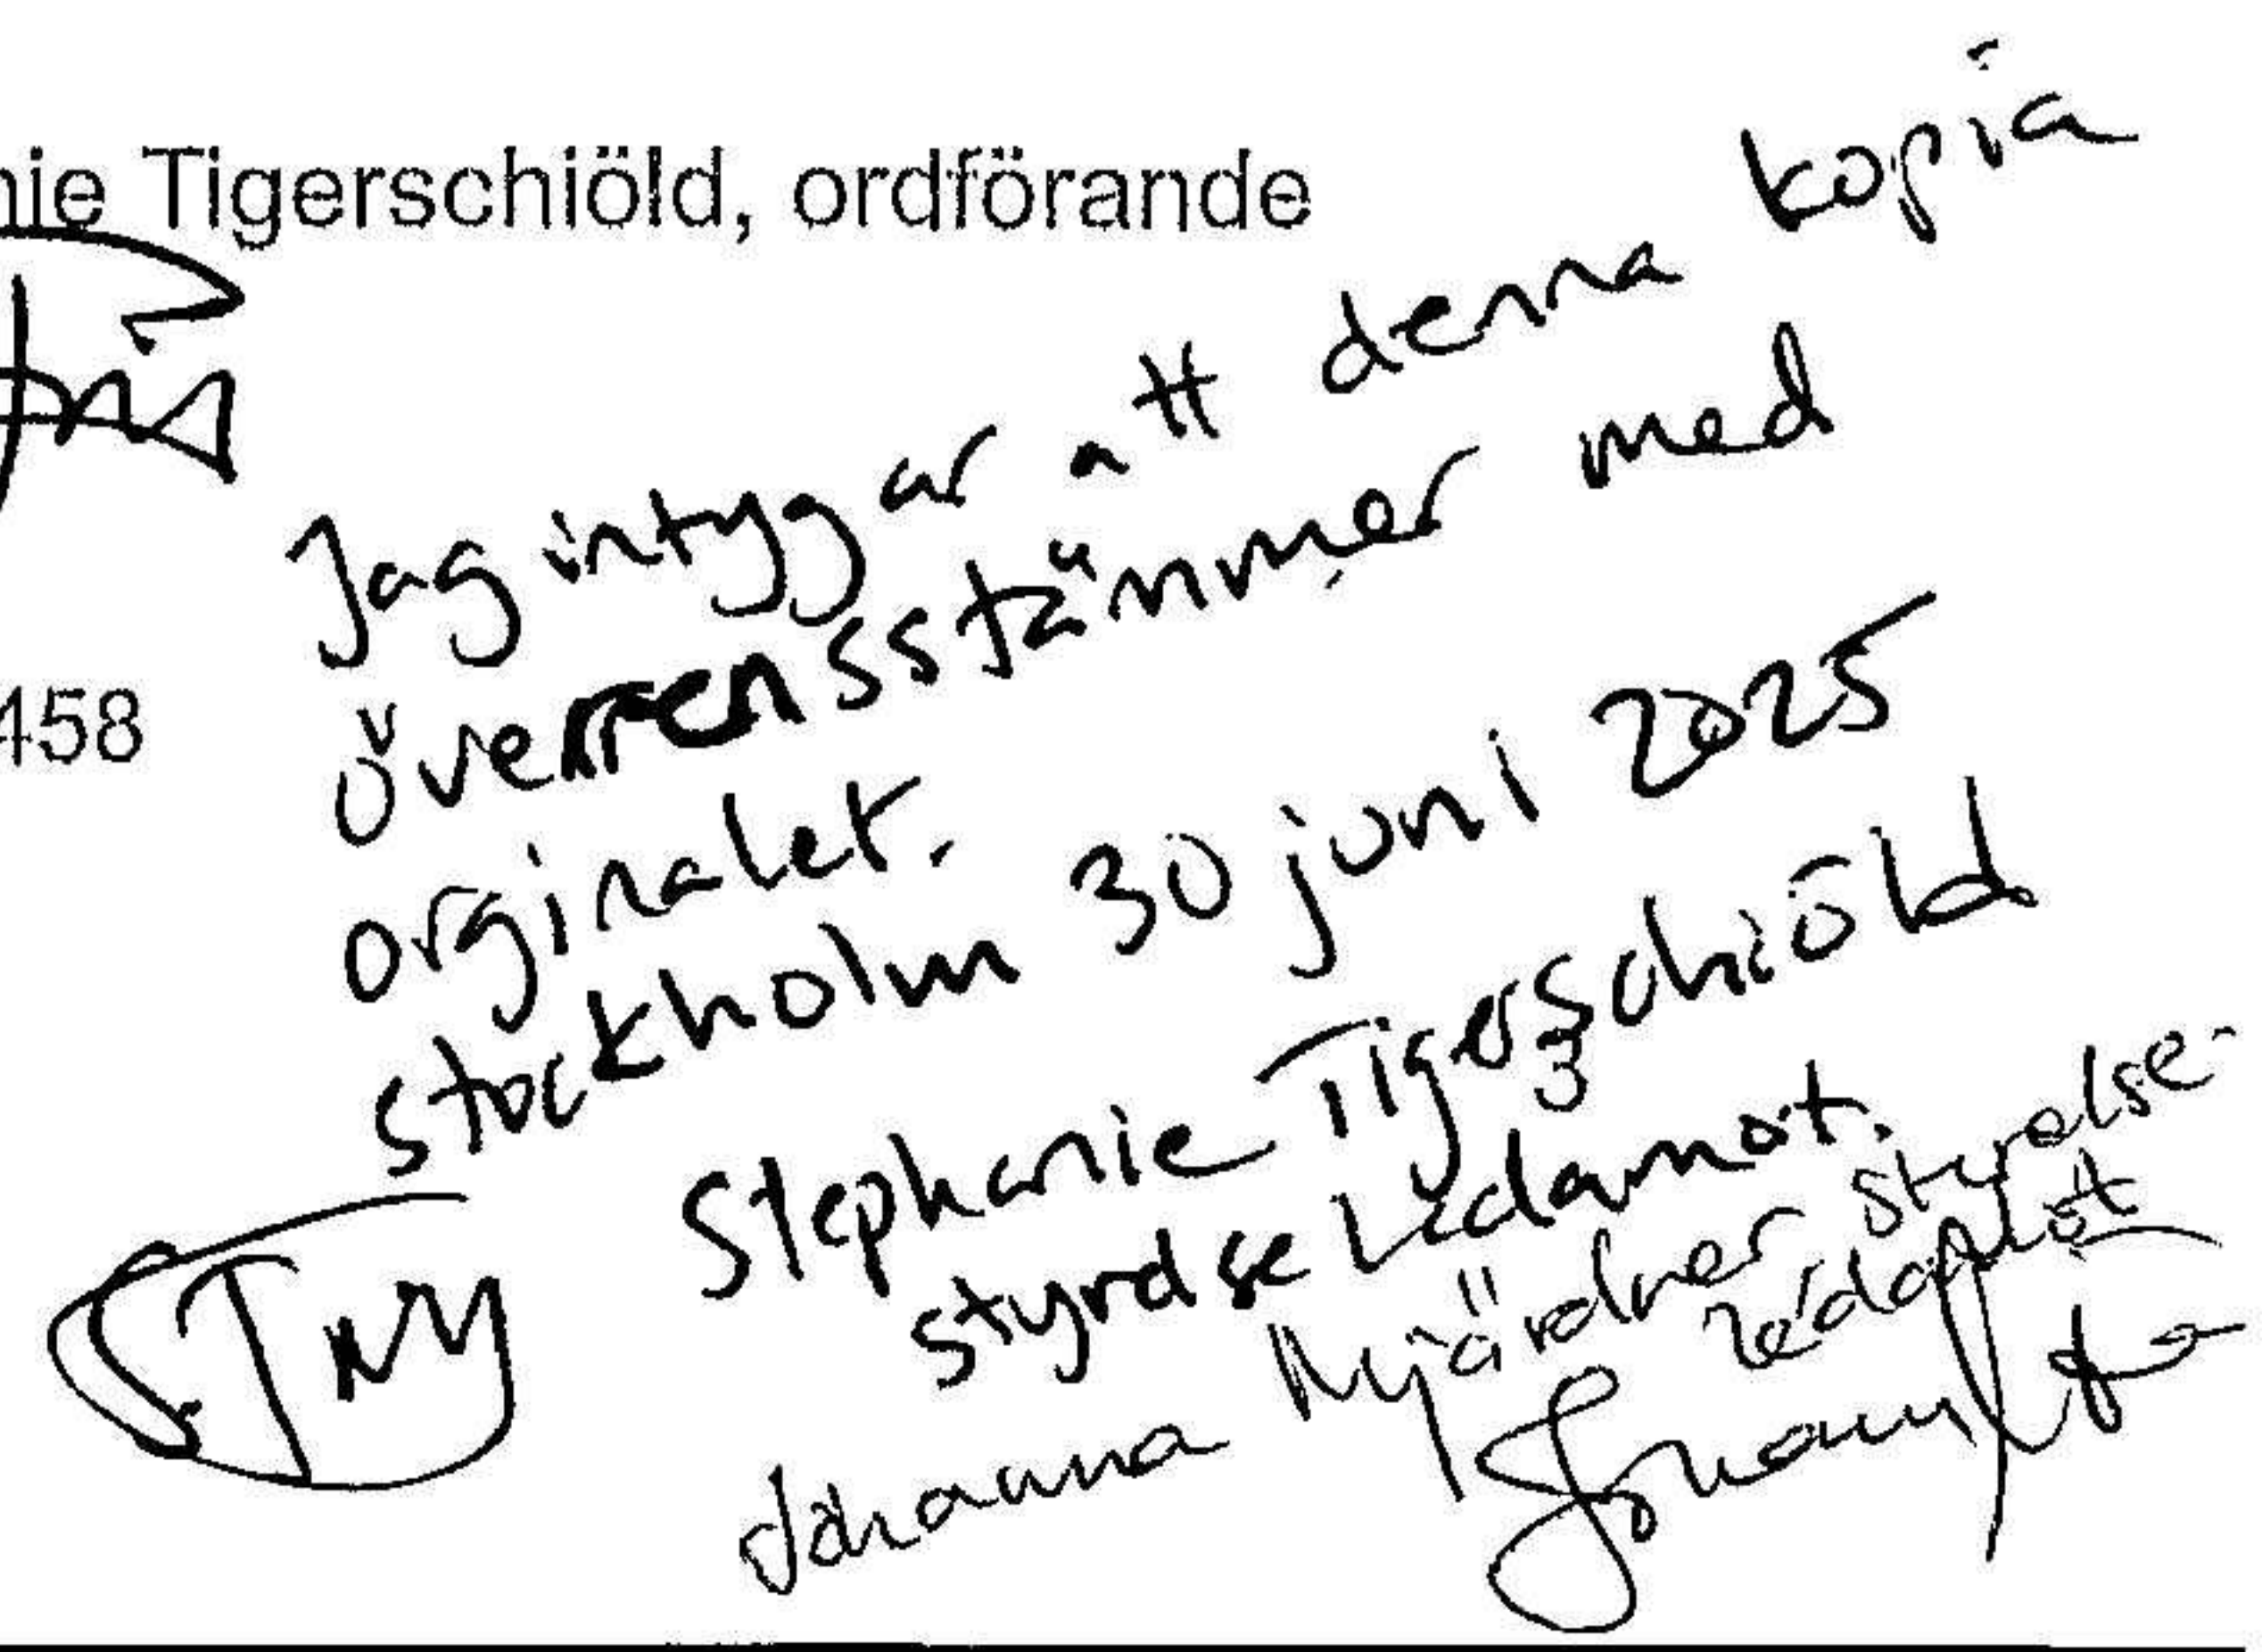 nie Tigerschiöld, ordförande
458
Jag intygar att denna kopia
överrensstämmer med
orginalet.
Stockholm 30 juni 2025
Stephanie Tigerschiöld
styrelseledamot.
Johanna Nyjärdner styrelse-
ledamot